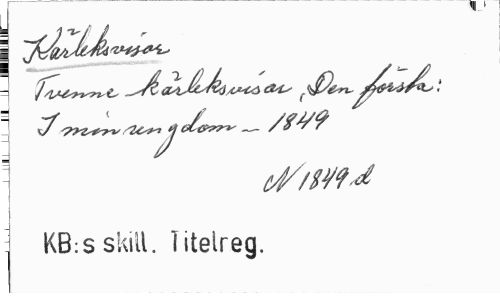 Kärleksvisor
Tvenne kärleksvisor, Den första:
I min ungdom – 1849
N 1849 d
KB:s skill. Titelreg.